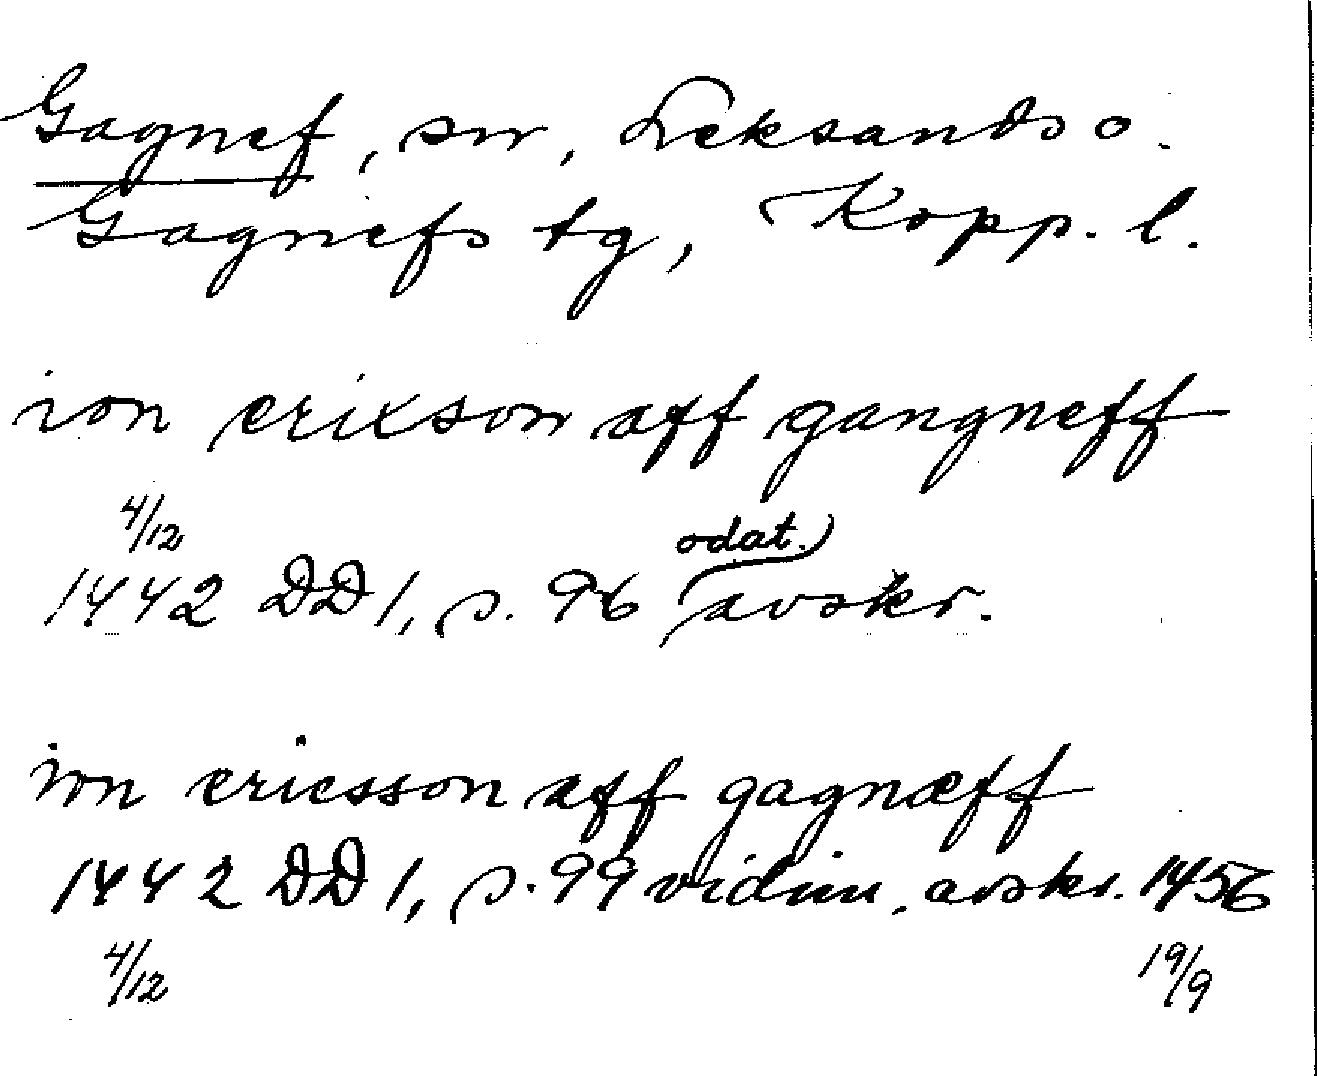 Gagnef, sn, Leksands o.
Gagnefs tg, Kopp. l.
ion erikson aff gangneff
4/12
odat.
1442 DD 1, s. 96 avskr.
ion ericsson aff gagnæff
1442 DD 1, s. 99 vidim. avskr. 1456
4/12 19/9